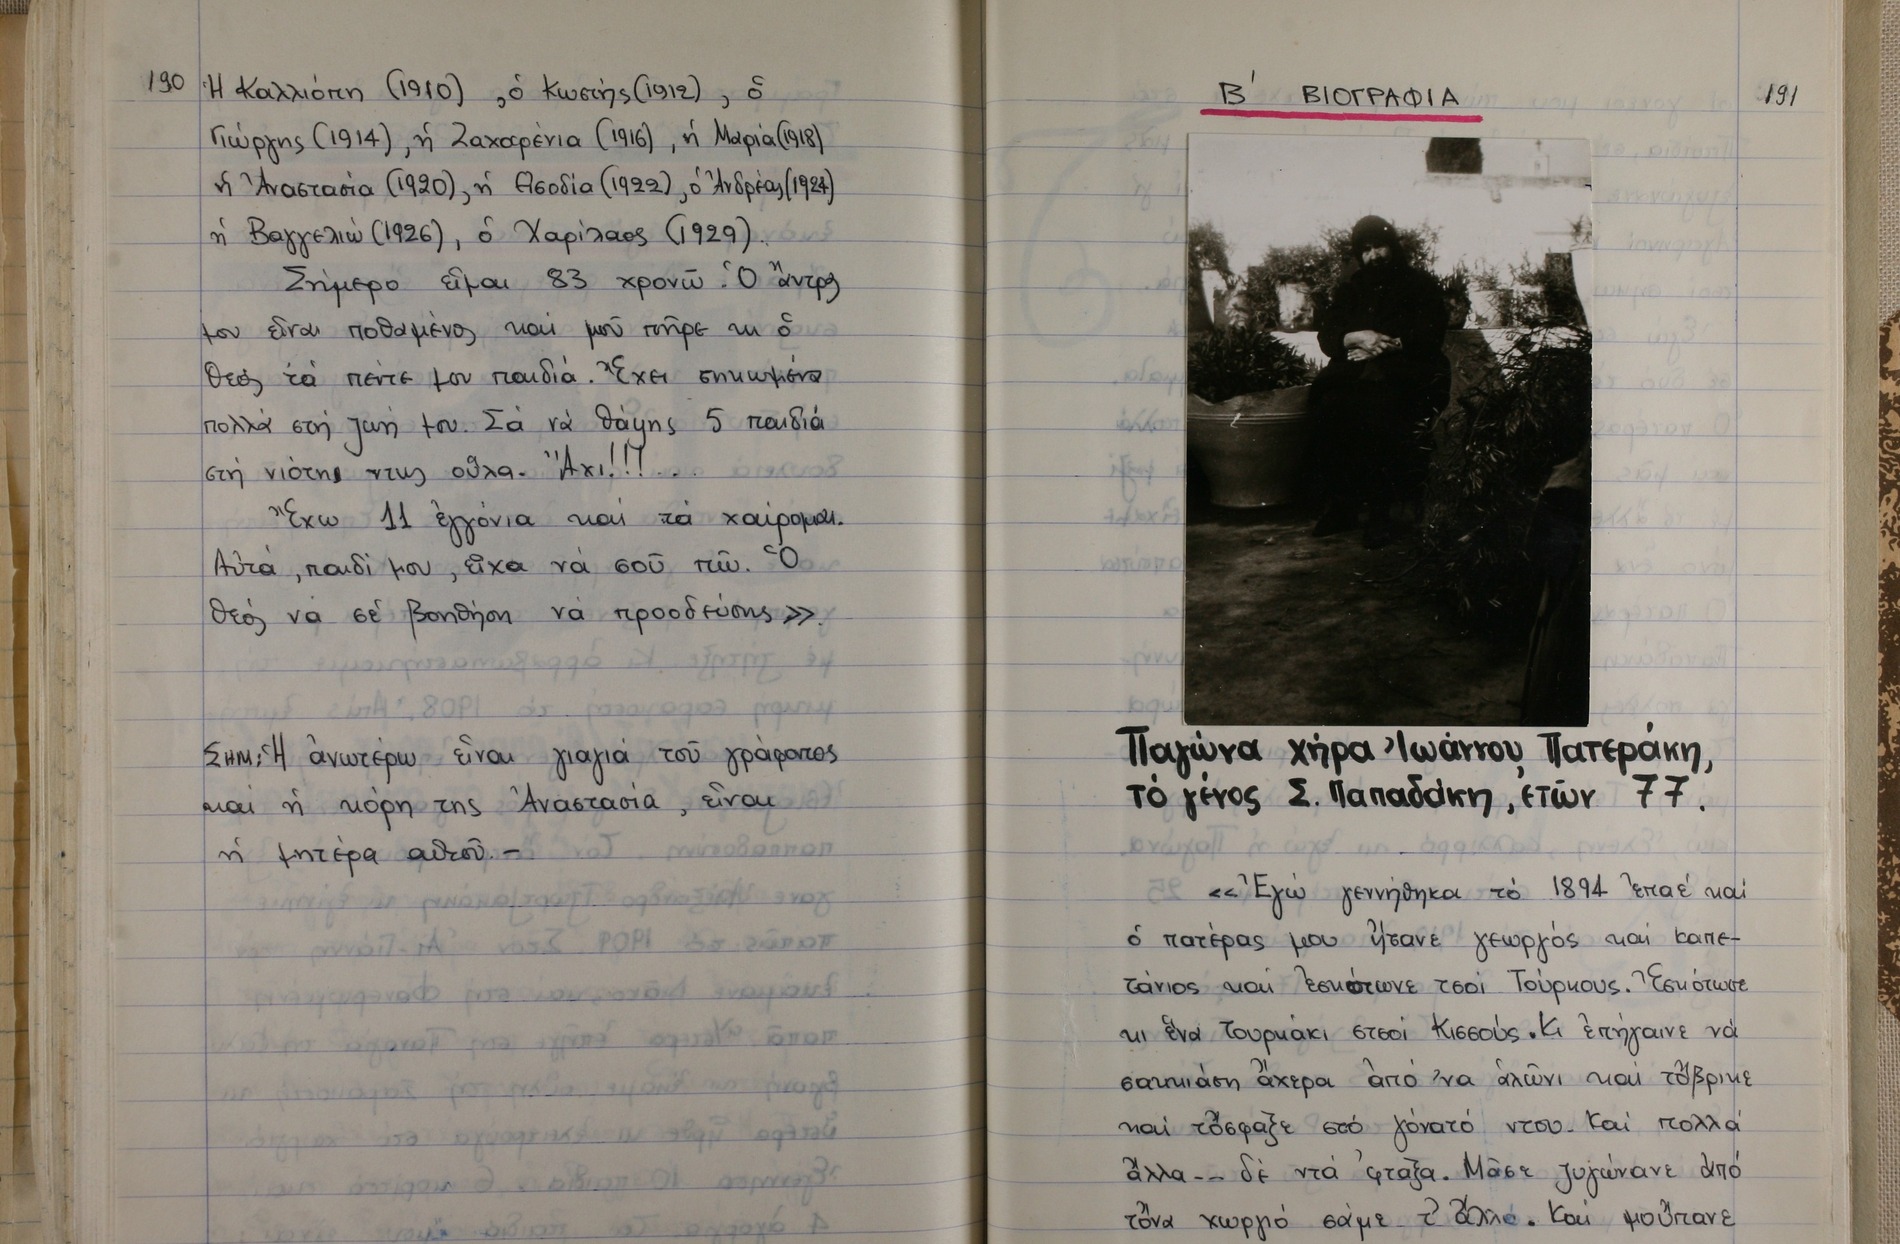 190
Ἡ Καλλιόπη (1910), ὁ Κωστής (1912), ὁ
Γιώργης (1914), ἡ Ζαχαρένια (1916), ἡ Μαρία (1918)
ἡ Ἀναστασία (1920), ἡ Ἀσοδία (1922), ὁ Ἀνδρέας (1924)
ἡ Βαγγελιώ (1926), ὁ Χαρίλαος (1929).
Σήμερο εἶμαι 83 χρονῶ. Ὁ ἄντρς
μου εἶναι ποθαμένος καί μοῦ πῆρε κι ὁ
Θεός τά πέντε μου παιδιά. Ἔχει σηκωμένα
πολλά στή ζωή μου. Σά νά θάψης 5 παιδιά
στή νιότης ντως οὗλα. Ἄχι!!!...
Ἔχω 11 ἐγγόνια καί τά χαίρομαι.
Αὐτά, παιδί μου, εἶχα νά σοῦ πῶ. Ὁ
Θεός νά σέ βοηθήση νά προοδεύσης».
ΣΗΜ: Ἡ ἀνωτέρω εἶναι γιαγιά τοῦ γράφοντος
καί ἡ κόρη της Ἀναστασία, εἶναι
ἡ μητέρα αὐτοῦ.-
191
Β' ΒΙΟΓΡΑΦΙΑ
Παγώνα χήρα Ἰωάννου Πατεράκη,
τό γένος Σ. Παπαδάκη, ἐτῶν 77.
«Ἐγώ γεννήθηκα τό 1894 ἐπαέ καί
ὁ πατέρας μου ἤτανε γεωργός καί καπε-
τάνιος καί ἐσκότωνε τσοί Τούρκους. Ἐσκότωσε
κι ἕνα Τουρκάκι στσοί Κισσούς. Κι ἐπήγαινε νά
σακκιάση ἄχερα ἀπό 'να ἁλῶνι καί τὄβρικε
καί τὄσφαξε στό γόνατό ντου. Καί πολλά
ἄλλα-- δέ ντά 'φταξα. Μᾶσε ζυγώνανε ἀπό
τὄνα χωργιό σάμε τ' ἄλλο. Καί μοὔπανε